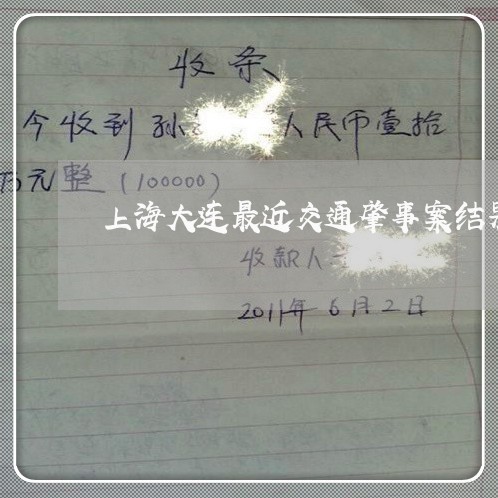 收条
今收到孙 人民币壹拾
万元整(100000)
上海大连最近交通肇事案结
收款人
2011年6月2日